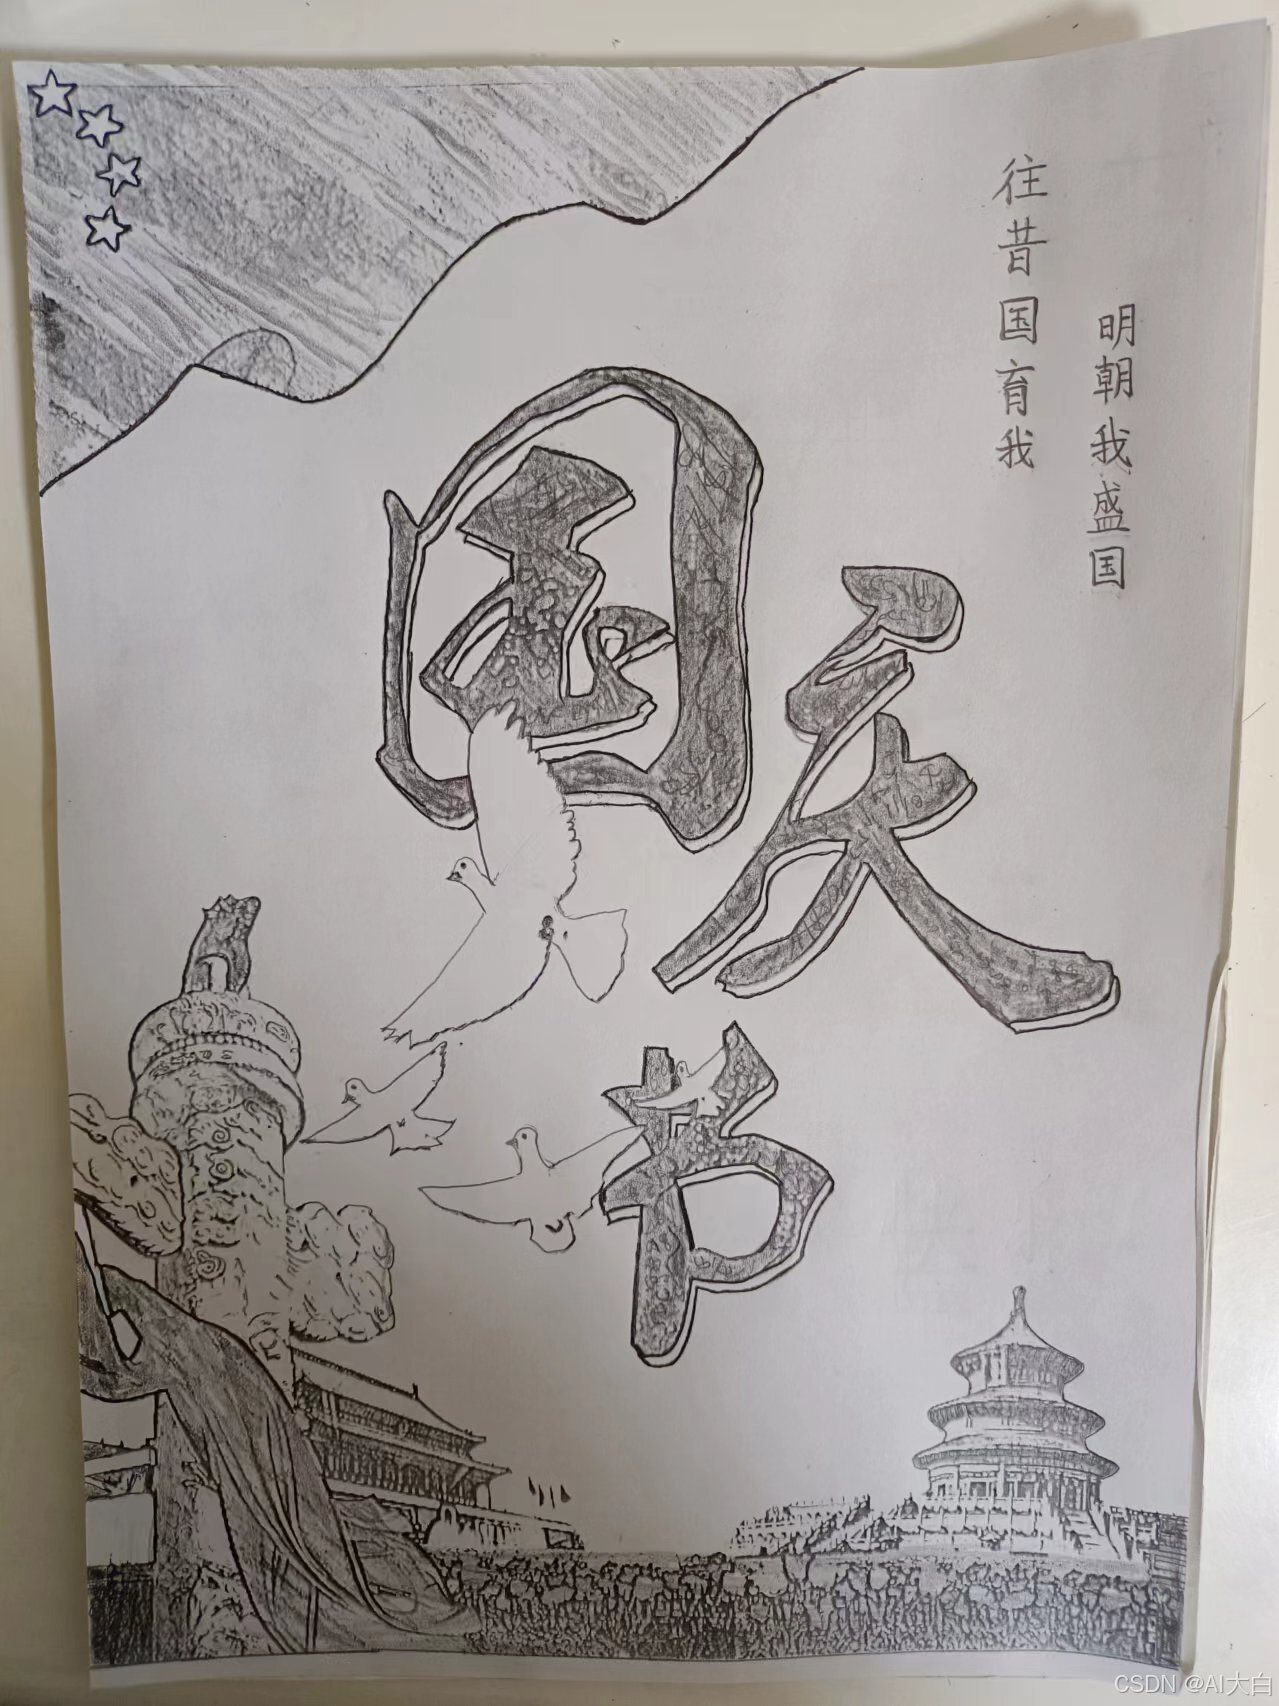 往昔国育我
明朝我盛国
国庆节
CSDN @AI大白